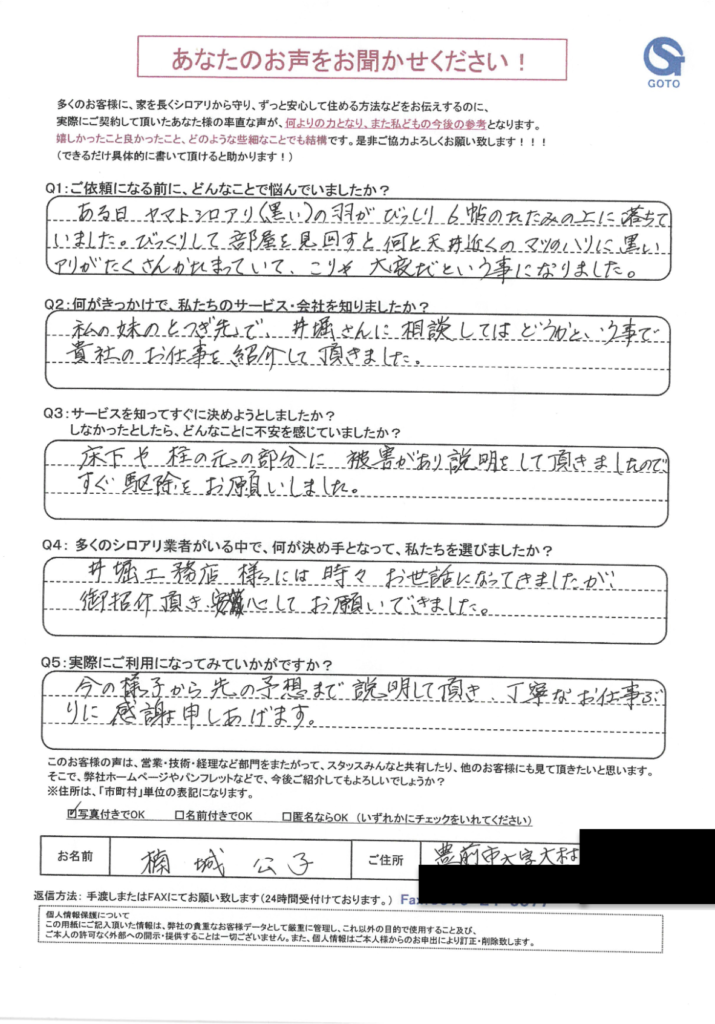 あなたのお声をお聞かせください！
GOTO
多くのお客様に、家を長くシロアリから守り、ずっと安心して住める方法などをお伝えするのに、
実際にご契約して頂いたあなた様の率直な声が、何よりの力となり、また私どもの今後の参考となります。
嬉しかったこと良かったこと、どのような些細なことでも結構です。是非ご協力よろしくお願い致します！！！
（できるだけ具体的に書いて頂けると助かります！）
Q1：ご依頼になる前に、どんなことで悩んでいましたか？
ある日 ヤマトシロアリ（黒い）の羽が びっしり 6帖のたたみの上に落ちて
いました。びっくりして部屋を見回すと何と天井近くのマツのハリに黒い
アリがたくさんかたまっていて、こりゃ 大変だという事になりました。
Q2：何がきっかけで、私たちのサービス・会社を知りましたか？
私の妹のとつぎ先で、井堀さんに相談してはどうかと、いう事で
貴社のお仕事を紹介して頂きました。
Q3：サービスを知ってすぐに決めようとしましたか？
しなかったとしたら、どんなことに不安を感じていましたか？
床下や柱の元の部分に 被害があり説明をして頂きましたので、
すぐ駆除をお願いしました。
Q4： 多くのシロアリ業者がいる中で、何が決め手となって、私たちを選びましたか？
井堀工務店様には時々お世話になってきましたが、
御招介頂き 安心してお願いできました。
Q5：実際にご利用になってみていかがですか？
今の様子から先の予想まで説明して頂き、丁寧なお仕事ぶ
りに感謝申しあげます。
このお客様の声は、営業・技術・経理など部門をまたがって、スタッスみんなと共有したり、他のお客様にも見て頂きたいと思います。
そこで、弊社ホームページやパンフレットなどで、今後ご紹介してもよろしいでしょうか？
※住所は、「市町村」単位の表記になります。
☑写真付きでOK □名前付きでOK □匿名ならOK （いずれかにチェックをいれてください）
お名前 楠城 公子 ご住所 豊前市大字大村
返信方法： 手渡しまたはFAXにてお願い致します（24時間受付ております。） Fax
個人情報保護について
この用紙にご記入頂いた情報は、弊社の貴重なお客様データとして厳重に管理し、これ以外の目的で使用すること及び、
ご本人の許可なく外部への開示・提供することは一切ございません。また、個人情報はご本人様からのお申出により訂正・削除致します。